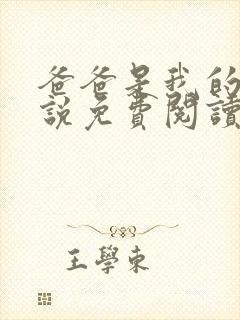 爸爸是我的
說免費閱讀
王學東